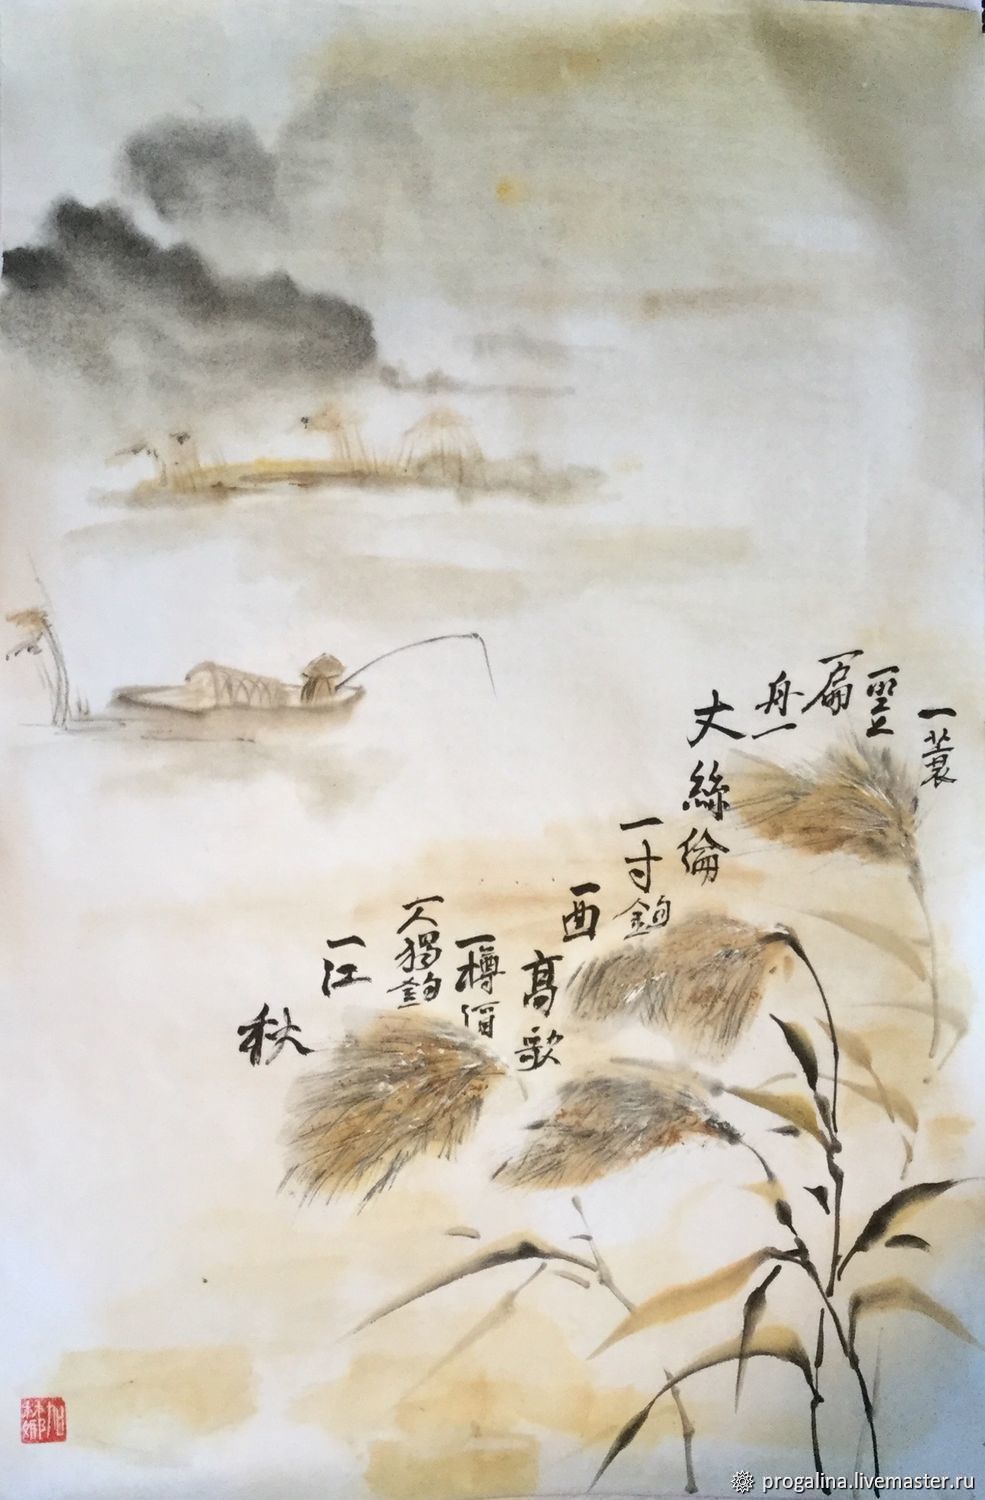 一蓑
一
一扁
舟一
丈絲綸
一寸鈎
一
高歌
一樽
一人獨釣
一江
秋
progalina.livemaster.ru